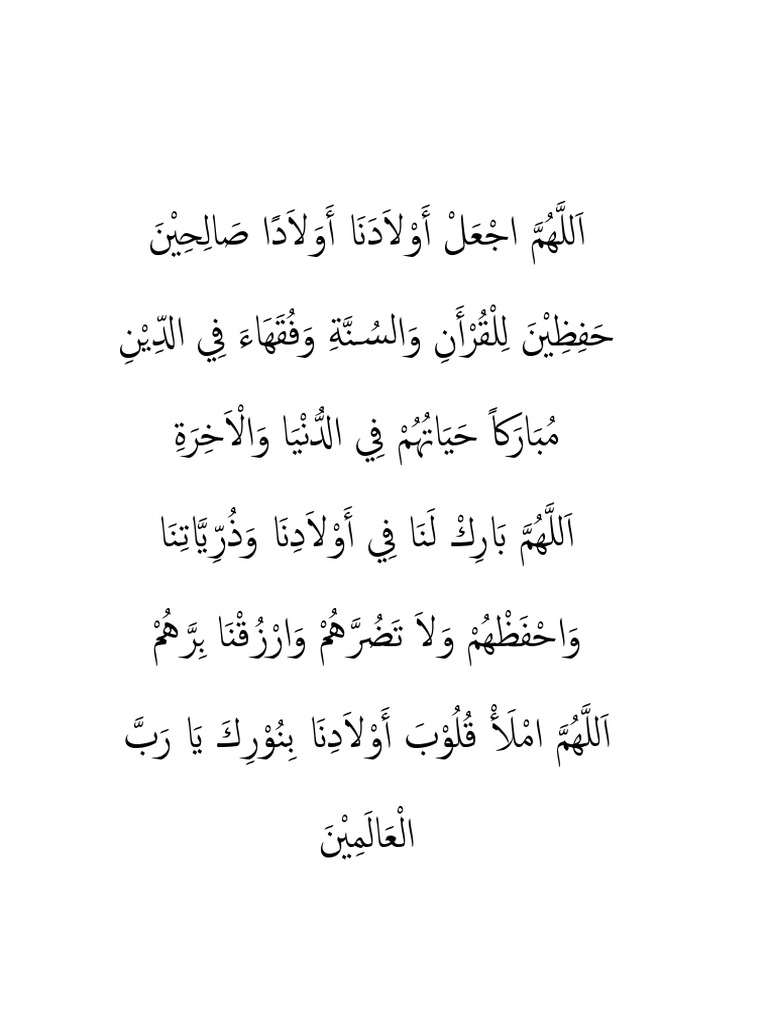 اَللَّهُمَّ اجْعَلْ أَوْلاَدَنَا أَوَلاَدًا صَالِحِيْنَ
حَفِظِيْنَ لِلْقُرْأَنِ وَالسُـنَّةِ وَفُقَهَاءَ فِي الدِّيْنِ
مُبَارَكاً حَيَاتُهُمْ فِي الدُّنْيَا وَالْاَخِرَةِ
اَللَّهُمَّ بَارِكْ لَنَا فِي أَوْلاَدِنَا وَذُرِّيَّاتِنَا
وَاحْفَظْهُمْ وَلاَ تَضُرَّهُمْ وَارْزُقْنَا بِرَّهُمْ
اَللَّهُمَّ امْلَأْ قُلُوْبَ أَوْلاَدِنَا بِنُوْرِكَ يَا رَبَّ
الْعَالَمِيْنَ